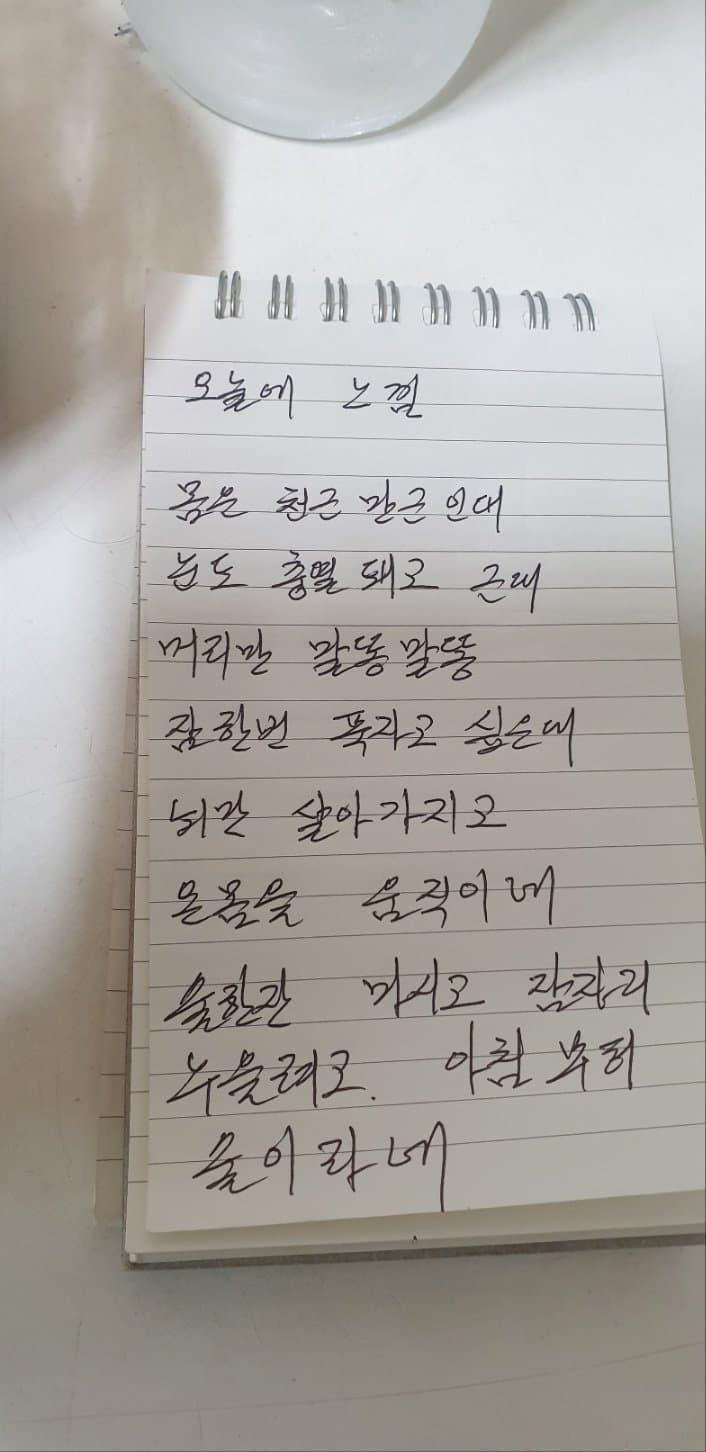 오늘에 느낌
몸은 천근 만근인대
눈도 충혈돼고 근대
머리만 말똥말똥
잠한번 푹자고 싶은대
뇌만 살아가지고
온몸을 움직이네
술한잔 마시고 잠자리
누을려고. 아침 부터
술이라네